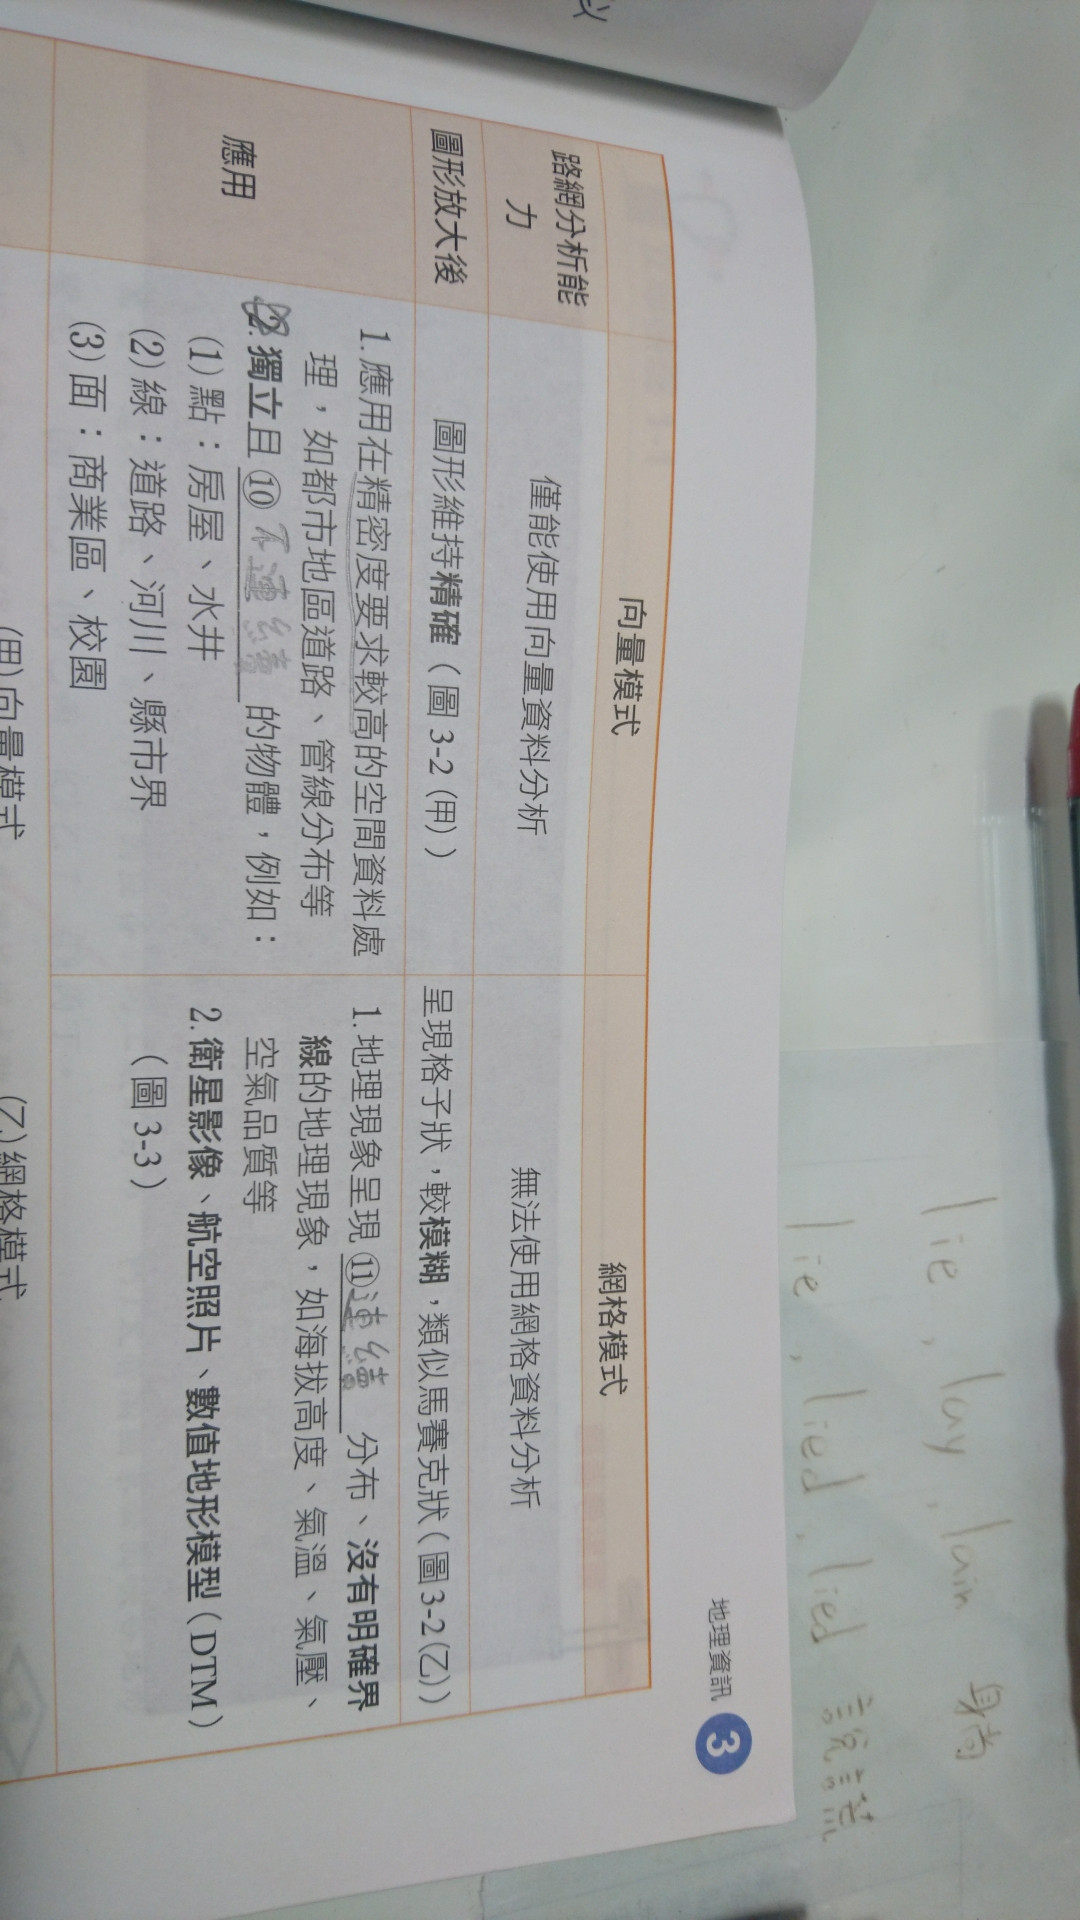 地理資訊 3
向量模式
網格模式
路網分析能力
僅能使用向量資料分析
無法使用網格資料分析
圖形放大後
圖形維持精確（圖 3-2 (甲)）
呈現格子狀，較模糊，類似馬賽克狀（圖 3-2 (乙)）
應用
1. 應用在精密度要求較高的空間資料處
理，如都市地區道路、管線分布等
2. 獨立且 ⑩ 不連續 的物體，例如：
(1) 點：房屋、水井
(2) 線：道路、河川、縣市界
(3) 面：商業區、校園
1. 地理現象呈現 ⑪ 連續 分布、沒有明確界
線的地理現象，如海拔高度、氣溫、氣壓、
空氣品質等
2. 衛星影像、航空照片、數值地形模型（DTM）
（圖 3-3）
(甲) 向量模式
(乙) 網格模式
lie, lay, lain 躺
lie, lied, lied 說謊